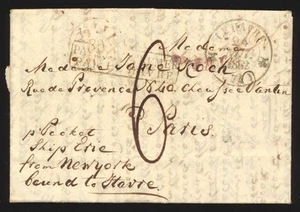 Madame
Madame Jane Koch
Rue de Provence No 40. chaussée d'Antin
6
Paris
p Packet
Ship Erie
from New York
bound to Havre.